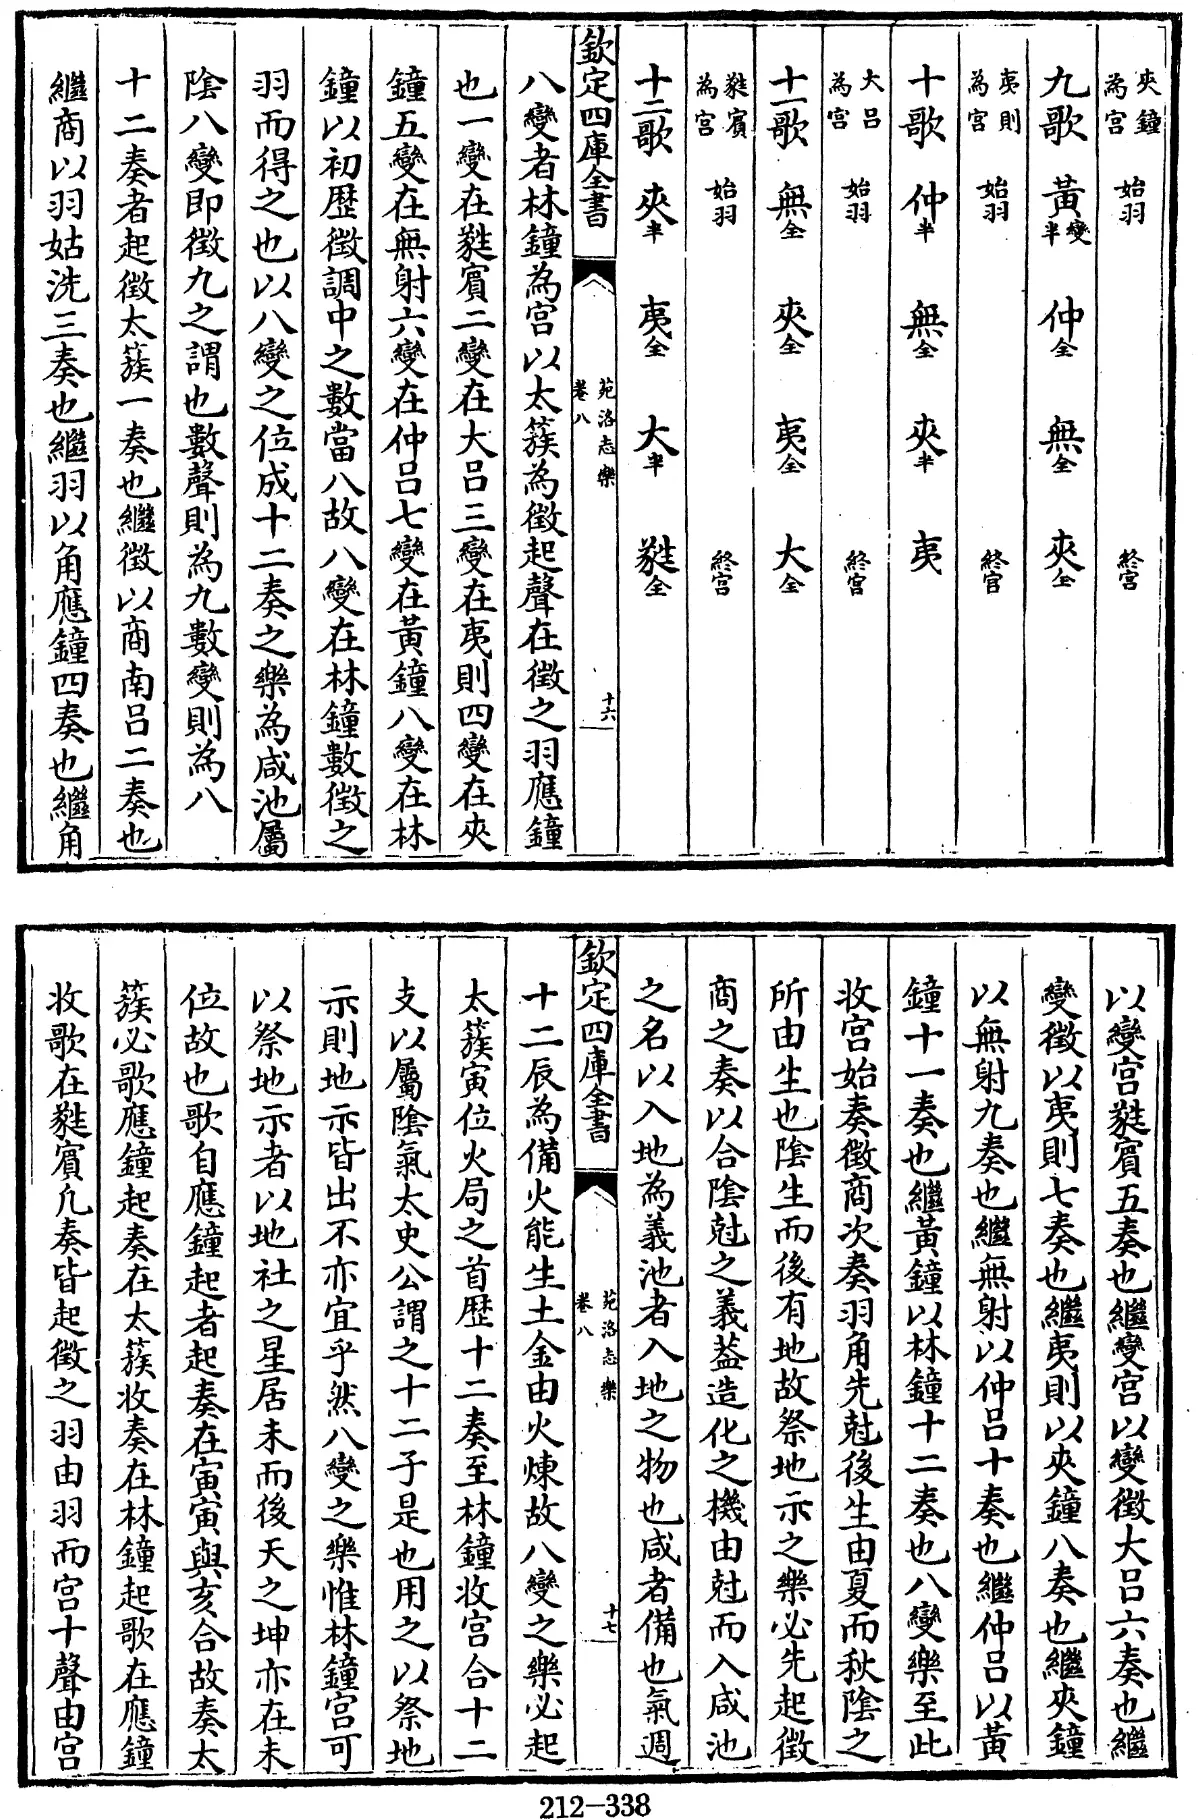 夾鐘為宮　始羽　終宮
九歌　黃變半　仲全　無全　夾全
夷則為宮　始羽　終宮
十歌　仲半　無全　夾半　夷
大呂為宮　始羽　終宮
十一歌　無全　夾全　夷全　大全
蕤賓為宮　始羽　終宮
十二歌　夾半　夷全　大半　蕤全
欽定四庫全書　苑洛志樂卷八　十六
八變者林鐘為宮以太簇為徵起聲在徵之羽應鐘
也一變在蕤賓二變在大呂三變在夷則四變在夾
鐘五變在無射六變在仲呂七變在黃鐘八變在林
鐘以初歴徵調中之數當八故八變在林鐘數徵之
羽而得之也以八變之位成十二奏之樂為咸池屬
陰八變即徵九之謂也數聲則為九數變則為八
十二奏者起徵太簇一奏也繼徵以商南呂二奏也
繼商以羽姑洗三奏也繼羽以角應鐘四奏也繼角
以變宮蕤賓五奏也繼變宮以變徵大呂六奏也繼
變徵以夷則七奏也繼夷則以夾鐘八奏也繼夾鐘
以無射九奏也繼無射以仲呂十奏也繼仲呂以黃
鐘十一奏也繼黃鐘以林鐘十二奏也八變樂至此
收宮始奏徵商次奏羽角先尅後生由夏而秋陰之
所由生也陰生而後有地故祭地示之樂必先起徵
商之奏以合陰尅之義葢造化之機由尅而入咸池
之名以入地為義池者入地之物也咸者備也氣週
欽定四庫全書　苑洛志樂卷八　十七
十二辰為備火能生土金由火煉故八變之樂必起
太簇寅位火局之首歴十二奏至林鐘收宮合十二
支以屬陰氣太史公謂之十二子是也用之以祭地
示則地示皆出不亦宜乎然八變之樂惟林鐘宮可
以祭地示者以地社之星居未而後天之坤亦在未
位故也歌自應鐘起者起奏在寅寅與亥合故奏太
簇必歌應鐘起奏在太簇收奏在林鐘起歌在應鐘
收歌在蕤賓凡奏皆起徵之羽由羽而宮十聲由宮
212-338